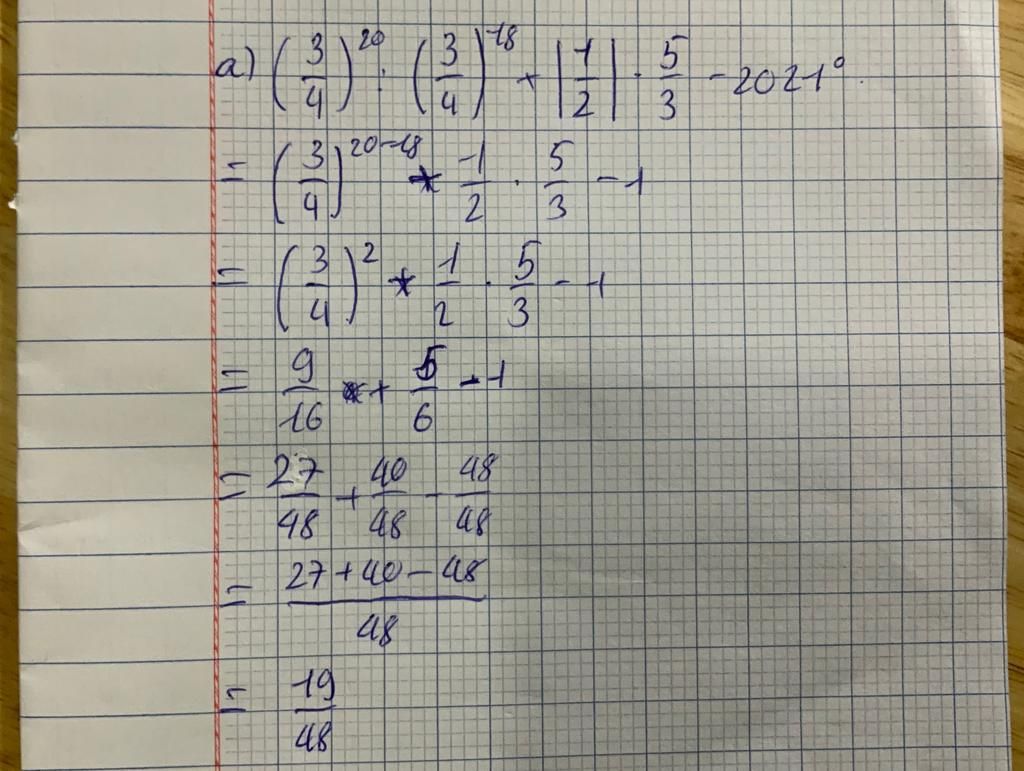 a) (3/4)^20 : (3/4)^18 + |1/2| · 5/3 - 2021^0.
= (3/4)^20-18 + 1/2 · 5/3 - 1
= (3/4)^2 + 1/2 · 5/3 - 1
= 9/16 + 5/6 - 1
= 27/48 + 40/48 - 48/48
= 27+40-48/48
= 19/48